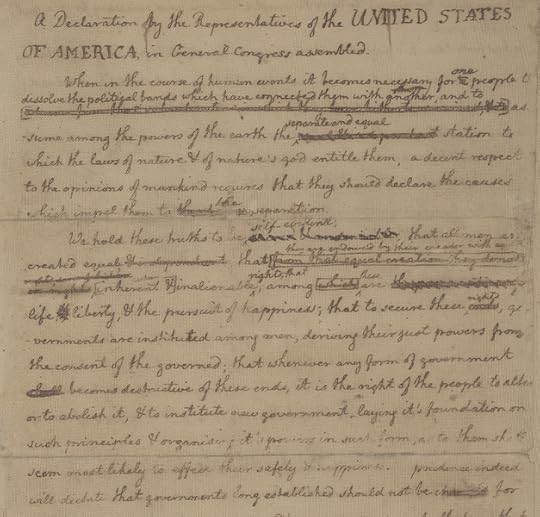 A Declaration by the Representatives of the UNITED STATES
OF AMERICA, in General Congress assembled.
When in the course of human events it becomes necessary for one people to
dissolve the political bands which have connected them with another, and to
as-
separate and equal
sume among the powers of the earth the station to
which the laws of nature & of nature's god entitle them, a decent respect
to the opinions of mankind requires that they should declare the causes
which impel them to the separation.
self-evident
We hold these truths to be that all men are
they are endowed by their creator with
created equal & independant that from that equal creation they derive
rights; that
inherent & inalienable among which these are
life liberty, & the pursuit of happiness; that to secure these ends, go-
rights
vernments are instituted among men, deriving their just powers from
the consent of the governed; that whenever any form of government
shall becomes destructive of these ends, it is the right of the people to alter
or to abolish it, & to institute new government, laying it's foundation on
such principles & organising it's powers in such form, as to them shall
seem most likely to effect their safety & happiness. prudence indeed
will dictate that governments long established should not be for